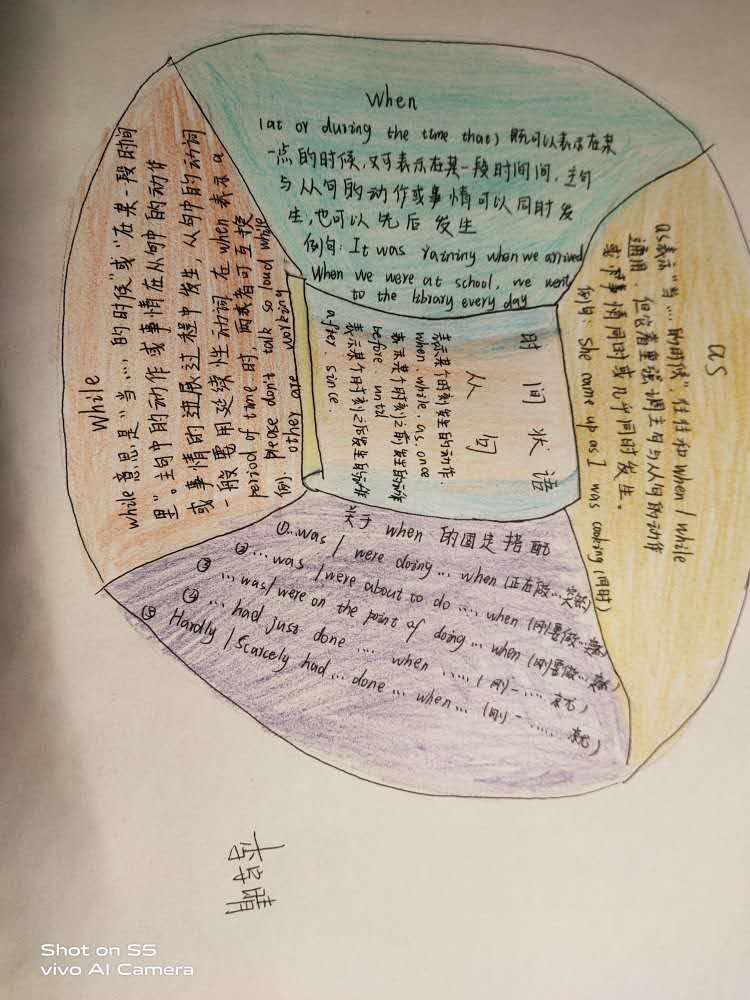 When
(at or during the time that) 既可以表示在某
一点的时候,又可表示在某一段时间间,主句
与从句的动作或事情可以同时发
生,也可以先后发生
例句: It was raining when we arrived
When we were at school, we went
to the library every day
as
as表示"当…的时候"往往和when/while
通用,但它着重强调主句与从句的动作
或事情同时或几乎同时发生。
例句: She came up as I was cooking (同时)
时间状语
从句
表示某个时刻发生的动作:
when, while, as, once
表示某个时刻之前发生的动作
before, until
表示某个时刻之后发生的动作
after, since.
While
while意思是"当…,的时候"或"在某一段时间
里"。主句中的动作或事情在从句中的动作
或事情的进展过程中发生,从句中的动词
一般需用延续性动词 在when表示a
period of time 时,两者可互换
例: please don't talk so loud while
other are working
关于when 的固定搭配
①…was / were doing… when (正在做…突然)
②…was /were about to do …. when (刚要做…突然)
③ …was/were on the point of doing… when (刚要做…突然)
④ … had just done …. when ….. (刚一….. 就)
⑤ Hardly / Scarcely had… done… when… (刚一…… 就)
Shot on S5
vivo AI Camera